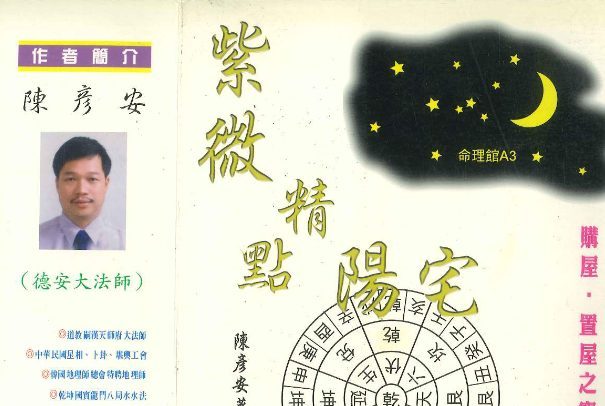 作者簡介
陳彥安
（德安大法師）
◎道教嗣漢天師府大法師
◎中華民國星相、卜卦、堪輿工會
◎韓國地理師總會特聘地理師
◎乾坤國寶龍門八局水水法
紫微
精
點
陽宅
命理館A3
購屋·置屋之
陳彥安著
乾
亥
壬
子
癸
丑
艮
坎
辛
酉
庚
申
伏
六
天
生
乾